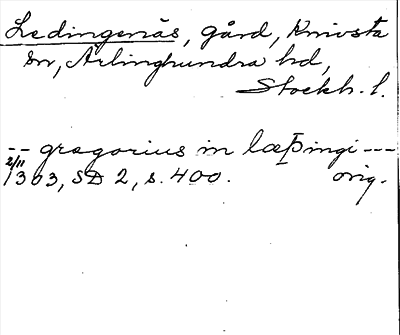 Ledingenäs, gård, Knivsta
sn, Ärlinghundra hd,
Stockh. l.
-- gregorius in læþingi ---
2/11
1303, SD 2, s. 400. orig.